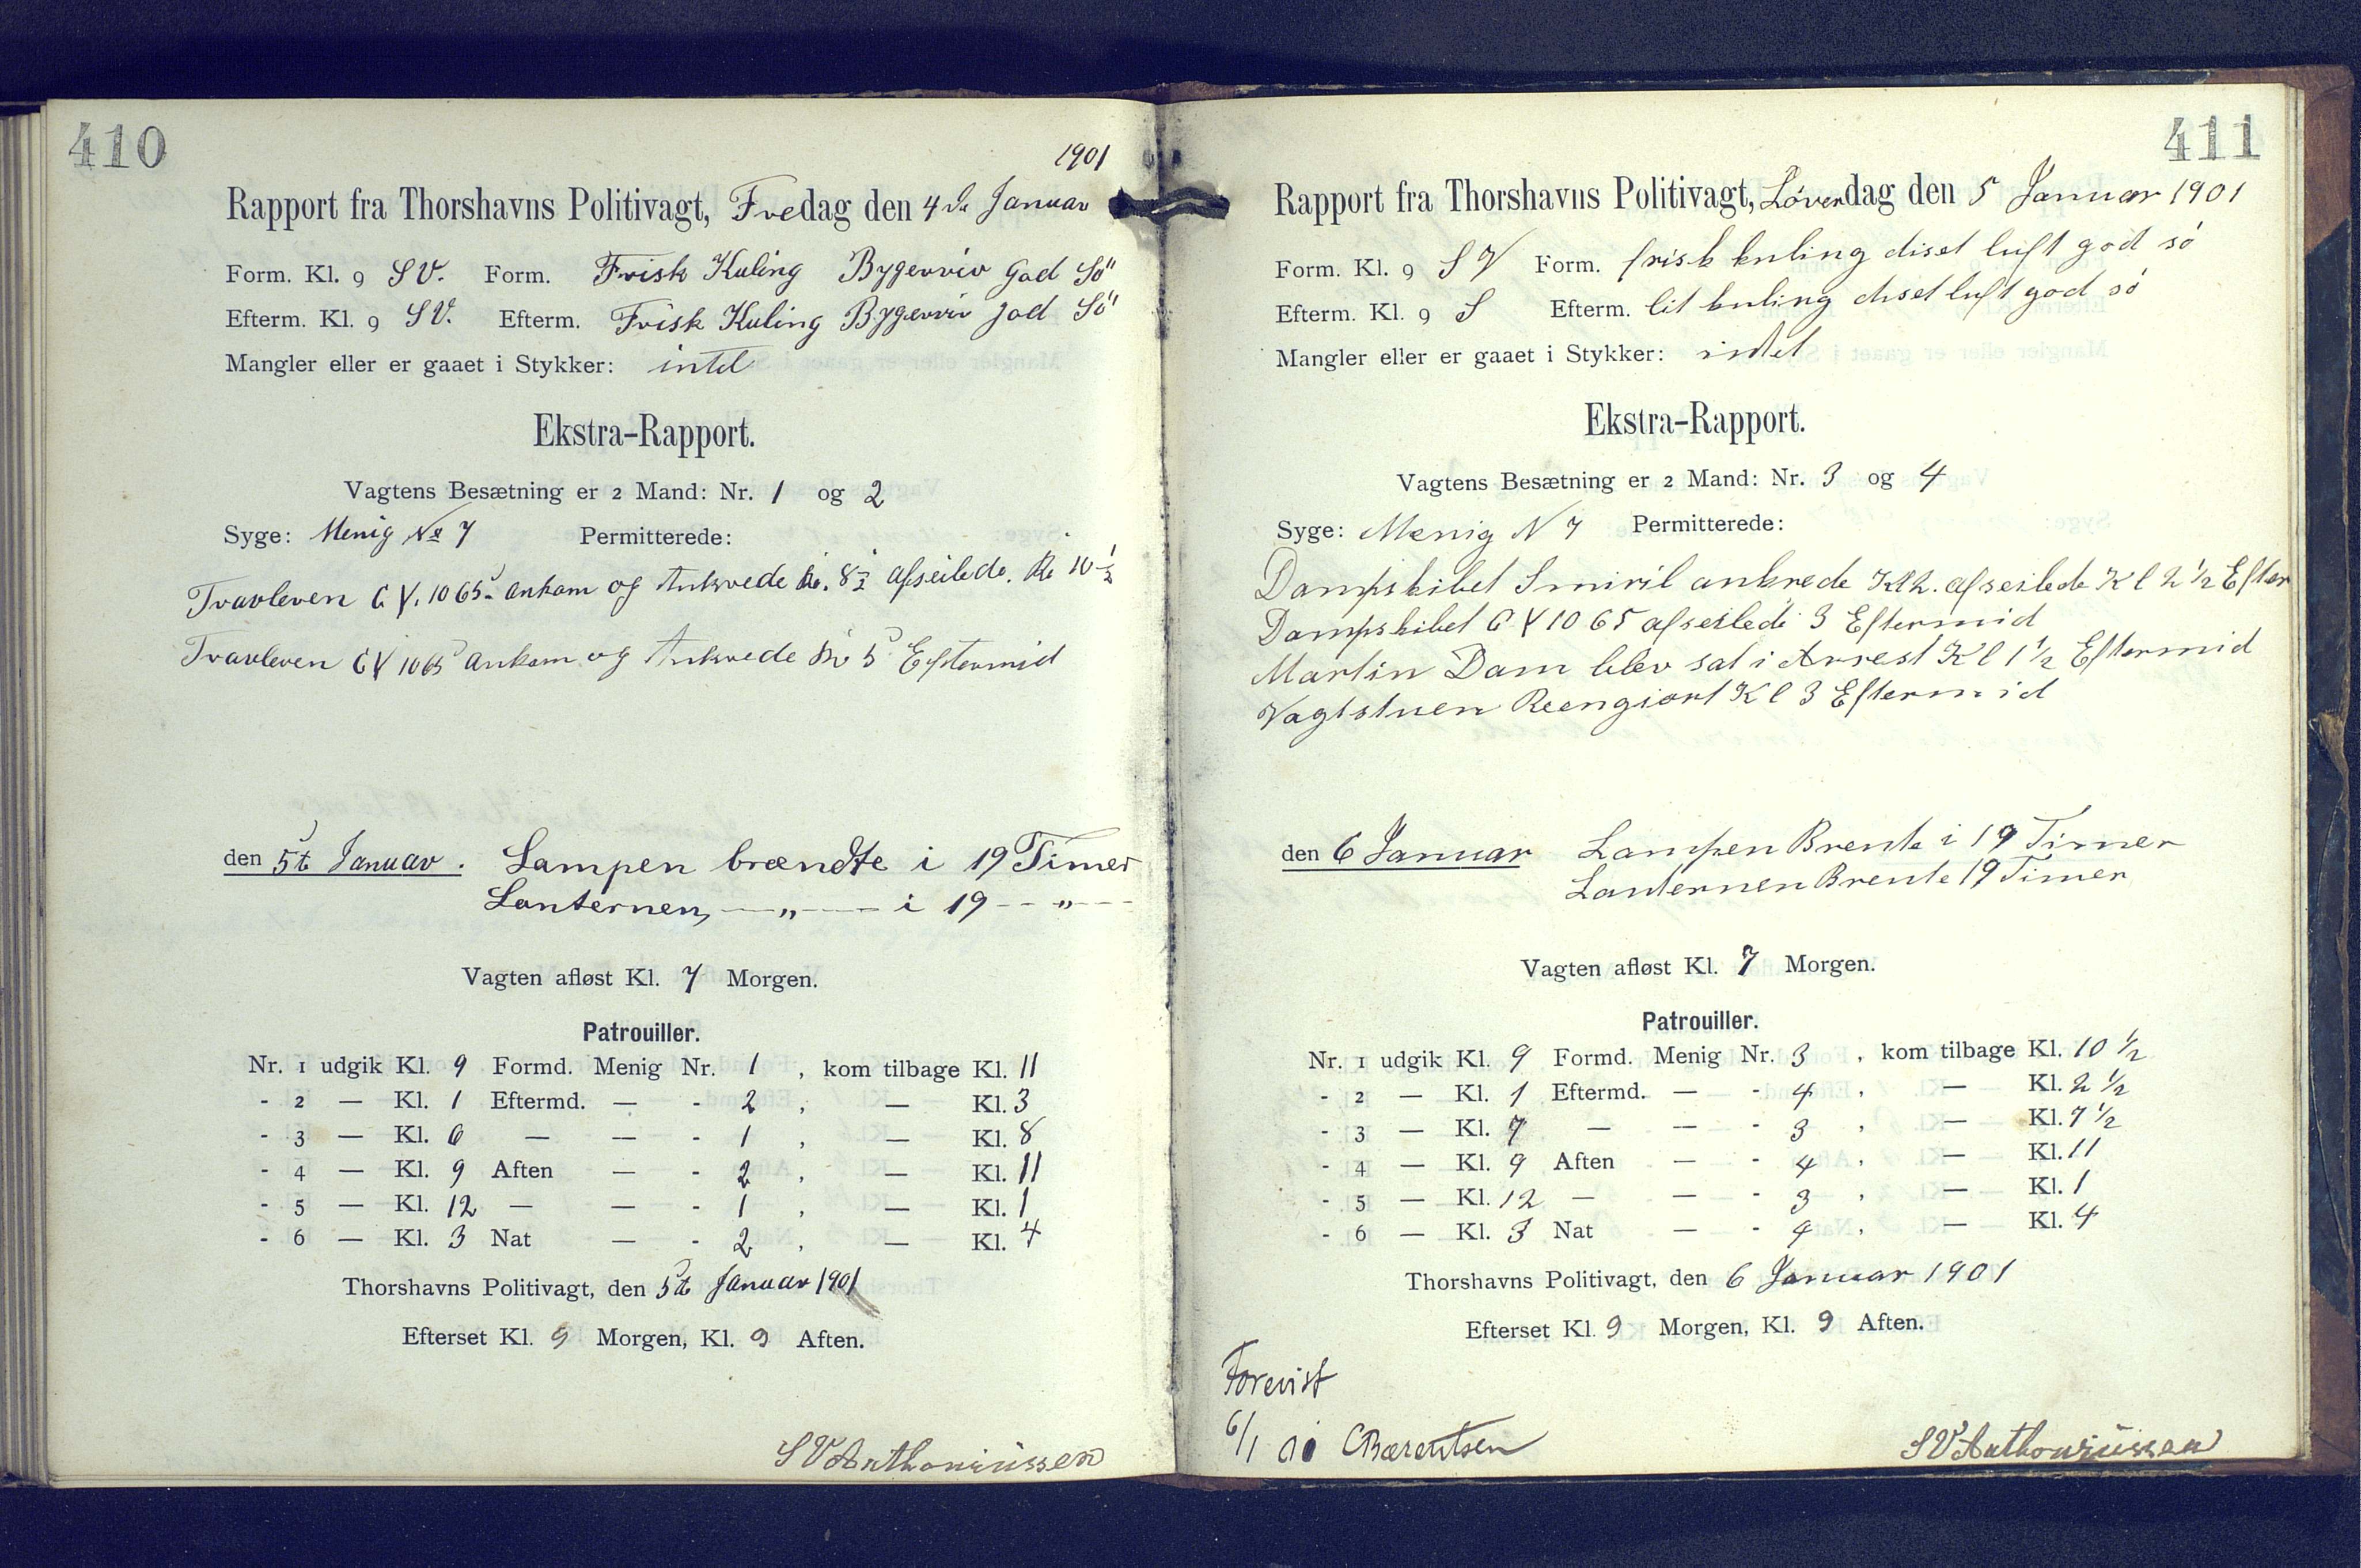 410
1901
Rapport fra Thorshavns Politivagt, Fredag den 4de Januar
Form. Kl. 9 SV. Form. Frisk Kuling Bygerviv God Sö
Efterm. Kl. 9 SV. Efterm. Frisk Kuling Bygerviv god Sö
Mangler eller er gaaet i Stykker: intet
Ekstra-Rapport.
Vagtens Besætning er 2 Mand: Nr. 1 og 2
Syge: Menig № 7 Permitterede:
Travleren G Y. 1065. Ankom og Ankrede Kl. 8½ afseilede. Kl 10½
Travleren GY 1065 Ankom og Ankrede Kl 5 Eftermid
den 5te Januar. Lampen brændte i 19 Timer
Lanternen, — „ — i 19 - - „ - -
Vagten afløst Kl. 7 Morgen.
Patrouiller.
Nr. 1 udgik Kl. 9 Formd. Menig Nr. 1 , kom tilbage Kl. 11
- 2 — Kl. 1 Eftermd. — - 2 , — Kl. 3
- 3 — Kl. 6 — — - 1 , — Kl. 8
- 4 — Kl. 9 Aften — - 2 , — Kl. 11
- 5 — Kl. 12 — — - 1 , — Kl. 1
- 6 — Kl. 3 Nat — - 2 , — Kl. 4
Thorshavns Politivagt, den 5te Januar 1901
Efterset Kl. 9 Morgen, Kl. 9 Aften.
SVAnthoniussen
411
Rapport fra Thorshavns Politivagt, Løverdag den 5 Januar 1901
Form. Kl. 9 SV Form. frisk kuling diset luft god sö
Efterm. Kl. 9 S Efterm. lit kuling diset luft god sö
Mangler eller er gaaet i Stykker: intet
Ekstra-Rapport.
Vagtens Besætning er 2 Mand: Nr. 3 og 4
Syge: Menig N 7 Permitterede:
Dampskibet Smiril ankrede Kl 2. afseilede Kl 2½ Efter
Dampskibet G Y 1065 afseilede 3 Eftermid
Martin Dam blev sat i Arrest Kl 1½ Eftermid
Vagtstuen Reengjort Kl 3 Eftermid
den 6 Januar Lampen Brente i 19 Timer
Lanternen Brente 19 Timer
Vagten afløst Kl. 7 Morgen.
Patrouiller.
Nr. 1 udgik Kl. 9 Formd. Menig Nr. 3 , kom tilbage Kl. 10½
- 2 — Kl. 1 Eftermd. — - 4 , — Kl. 2½
- 3 — Kl. 7 — — - 3 , — Kl. 7½
- 4 — Kl. 9 Aften — - 4 , — Kl. 11
- 5 — Kl. 12 — — - 3 , — Kl. 1
- 6 — Kl. 3 Nat — - 4 , — Kl. 4
Thorshavns Politivagt, den 6 Januar 1901
Efterset Kl. 9 Morgen, Kl. 9 Aften.
Forevist
6/1 01 CBærentsen
SVAnthoniussen